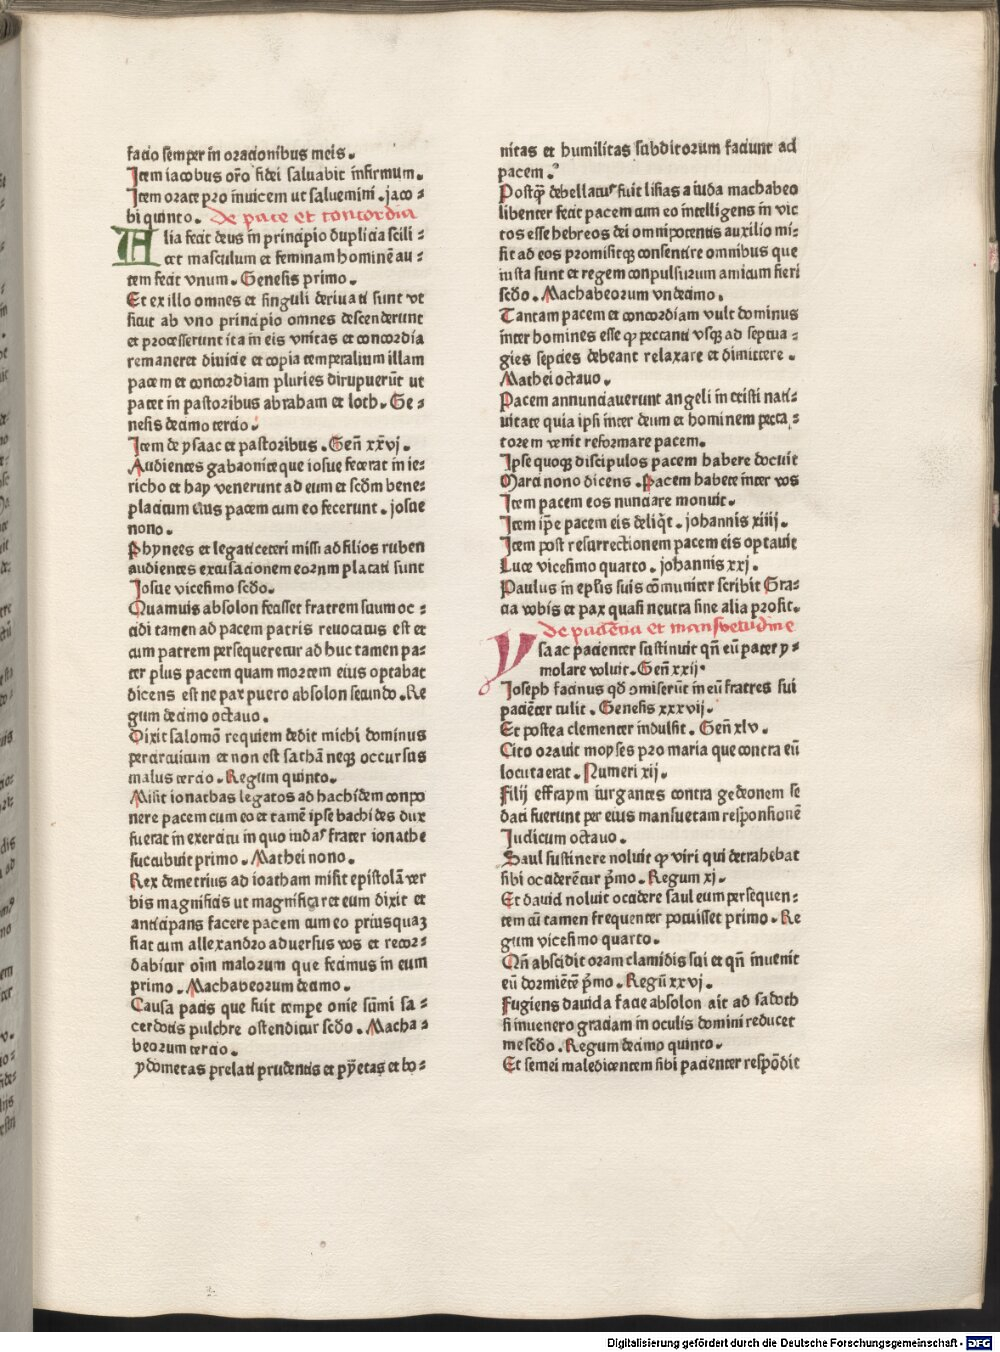 facio semper in oracionibus meis.
Item iacobus oro͂ fidei saluabit infirmum.
Item orate pro inuicem ut saluemini. jaco⸗
bi quinto. De pace et concordia
Alia fecit deus in principio duplicia scili⸗
cet masculum et feminam hominē au⸗
tem fecit vnum. Genesis primo.
Et ex illo omnes et singuli deriuati sunt vt
sicut ab vno principio omnes descenderunt
et processerunt ita in eis vnitas et concordia
remaneret diuicie et copia temperalium illam
pacem et concordiam pluries dirupuerūt ut
patet in pastoribus abraham et loth. Ge⸗
nesis decimo tercio.
Item de ysaac et pastoribus. Gen̄ xxvj.
Audientes gabaonite que iosue fecerat in ie⸗
richo et hay venerunt ad eum et scd̄m bene⸗
placitum eius pacem cum eo fecerunt. josue
nono.
Phynees et legati ceteri missi ad filios ruben
audientes excusacionem eornm placati sunt
Josue vicesimo scdo.
Quamuis absolon fecisset fratrem suum oc⸗
cidi tamen ad pacem patris reuocatus est et
cum patrem persequeretur ad huc tamen pa⸗
ter plus pacem quam mortem eius optabat
dicens est ne pax puero absolon secundo. Re
gum decimo octauo.
Dixit salomō requiem dedit michi dominus
per circuitum et non est sathā neqꝫ occursus
malus tercio. Regum quinto.
Misit ionathas legatos ad bachidem conpo
nere pacem cum eo et tamē ipse bachides dux
fuerat in exercitu in quo iudaꝰ frater ionathe
succubuit primo. Mathei nono.
Rex demetrius ad ioatham misit epistolā ver
bis magnificis ut magnificaret eum dixit et
anticipans facere pacem cum eo priusquaꝫ
fiat cum allexandro aduersus vos et recor⸗
dabitur oīm malorum que fecimus in eum
primo. Machabeorum decimo.
Causa pacis que fuit tempe onie sūmi sa⸗
cerdotis pulchre ostenditur scdo. Macha⸗
beorum tercio.
ydometas prelati prudentis et pyetas et bo⸗
nitas et humilitas subditorum faciunt ad
pacem.
Postqꝫ debellatuꝰ fuit lisias a iuda machabeo
libenter fecit pacem cum eo intelligens in vic
tos esse hebreos dei omnipotentis auxilio mi⸗
sit ad eos promisitqꝫ consentire omnibus que
iusta sunt et regem conpulsurum amicum fieri
scdo. Machabeorum vndecimo.
Tantam pacem et concordiam vult dominus
inter homines esse ꝙ peccanti vsqꝫ ad septua⸗
gies sepcies debeant relaxare et dimittere.
Mathei octauo.
Pacem annunciauerunt angeli in cristi nati⸗
uitate quia ipsi inter deum et hominem pecca⸗
torem venit reformare pacem.
Ipse quoqꝫ discipulos pacem habere docuit
Marci nono dicens. Pacem habete inter vos
Item pacem eos nunciare monuit.
Item ip̄e pacem eis deliq̄t. johannis xiiij.
Item post resurrectionem pacem eis optauit
Luce vicesimo quarto. johannis xxj.
Paulus in ep̄lis suis cōmuniter scribit Gra⸗
cia vobis et pax quasi neutra sine alia prosit.
de paciēcia et mansuetudine
Ysaac pacienter sustinuit qn̄ eū pater y⸗
molare voluit. Gen̄ xxij.
Joseph facinus qd̄ cōmiserūt in eū fratres sui
paciēter tulit. Genesis xxxvij.
Et postea clementer indulsit. Gen̄ xlv.
Cito orauit moyses pro maria que contra eū
locuta erat. Numeri xij.
Filij effraym iurgantes contra gedeonem se
dati fuerunt per eius mansuetam responsionē
Judicum octauo.
Saul sustinere noluit ꝙ viri qui detrahebat
sibi occiderētur p̄mo. Regum xj.
Et dauid noluit occidere saul eum persequen⸗
tem cū tamen frequenter potuisset primo. Re
gum vicesimo quarto.
Qn̄ abscidit oram clamidis sui et qn̄ inuenit
eū dormiētē p̄mo. Regū xxvj.
Fugiens dauid a facie absolon ait ad sadoch
si inuenero graciam in oculis domini reducet
me scdo. Regum decimo quinto.
Et semei maledicentem sibi pacienter respōdit
Digitalisierung gefördert durch die Deutsche Forschungsgemeinschaft - DFG